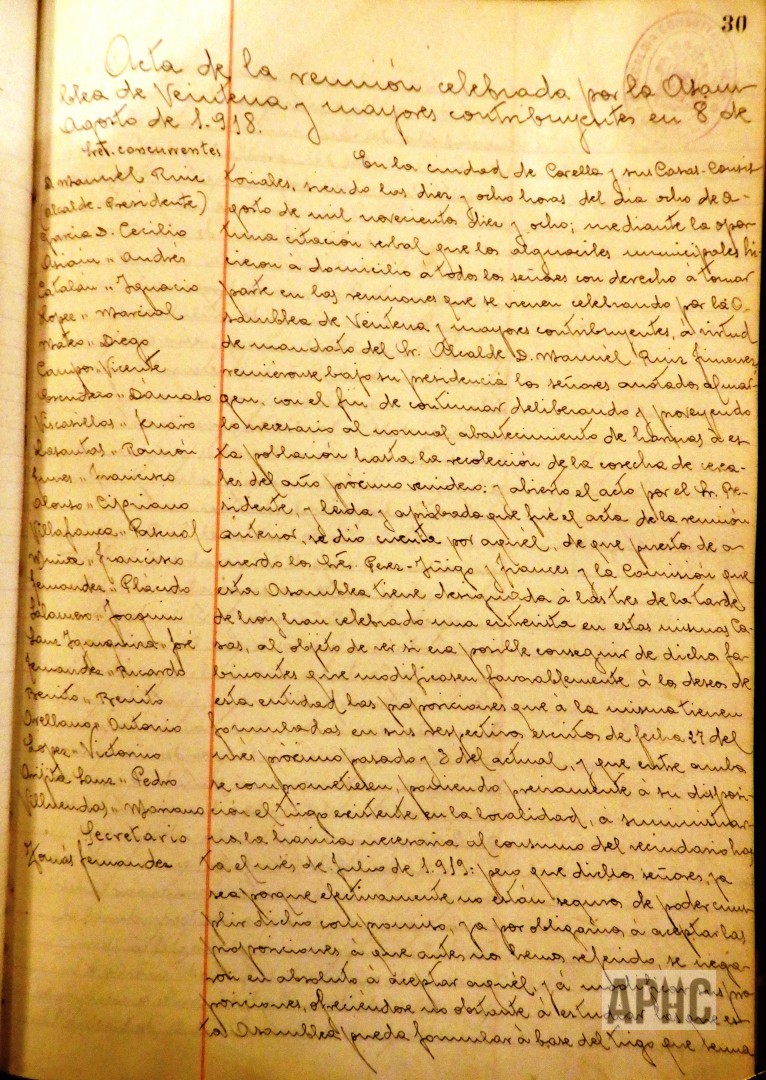 30
Acta de la reunión celebrada por la Asam-
blea de Veintena y mayores contribuyentes en 8 de
Agosto de 1.918.
Sres. concurrentes
D. Manuel Ruiz
Alcalde-Presidente)
Garcia D. Cecilio
" Andrés
Catalán " Ignacio
Lopez " Marcial
Mateo " Diego
Campos " Vicente
" Dámaso
Viscasillas " Jenaro
" Ramón
" Francisco
Alonso " Cipriano
Villafranca " Pascual
" Francisco
Fernandez " Plácido
Salamero " Joaquin
Sanz " José
Fernandez " Ricardo
Benito " Benito
Arellano " Antonio
López " Victorino
Sanz " Pedro
Villuendas " Mariano
Secretario
Tomás Fernandez
En la ciudad de Corella y sus Casas-Consis-
toriales, siendo las diez y ocho horas del dia ocho de A-
gosto de mil novecientos diez y ocho; mediante la opor-
tuna citación verbal que los alguaciles municipales hi-
cieron á domicilio á todos los señores con derecho á tomar
parte en las reuniones que se vienen celebrando por la A-
samblea de Veintena y mayores contribuyentes, á virtud
de mandato del Sr. Alcalde D. Manuel Ruiz Jimenez,
reuniéronse bajo su presidencia los señores anotados al mar-
gen, con el fin de continuar deliberando y proveyendo
lo necesario al normal abastecimiento de harinas á es-
ta población hasta la recolección de la cosecha de cerea-
les del año próximo venidero; y abierto el acto por el Sr. Pre-
sidente, y leida y aprobada que fué el acta de la reunión
anterior, se dió cuenta por aquel, de que puestos de a-
cuerdo los Sres. Perez-Iñigo y Frances y la Comisión que
esta Asamblea tiene designada á las tres de la tarde
de hoy han celebrado una entrevista en estas mismas Ca-
sas, al objeto de ver si era posible conseguir de dichos fa-
bricantes que modificasen favorablemente á los deseos de
esta entidad las proposiciones que á la misma tienen
formuladas en sus respectivos escritos de fecha 27 del
mes próximo pasado y 3 del actual, y que entre ambos
se comprometiesen, poniendo previamente á su disposi-
ción el trigo existente en la localidad, á suministrar-
nos la harina necesaria al consumo del vecindario has-
ta el mes de Julio de 1.919: pero que dichos señores, ya
sea porque efectivamente no están seguros de poder cum-
plir dicho compromiso, ya por obligarnos á aceptar las
proposiciones á que antes nos hemos referido, se nega-
ron en absoluto á aceptar aquél, y á modificar sus pro-
posiciones, ofreciendose no obstante á estudiar las que es-
ta Asamblea pueda formular á base del trigo que
APHC